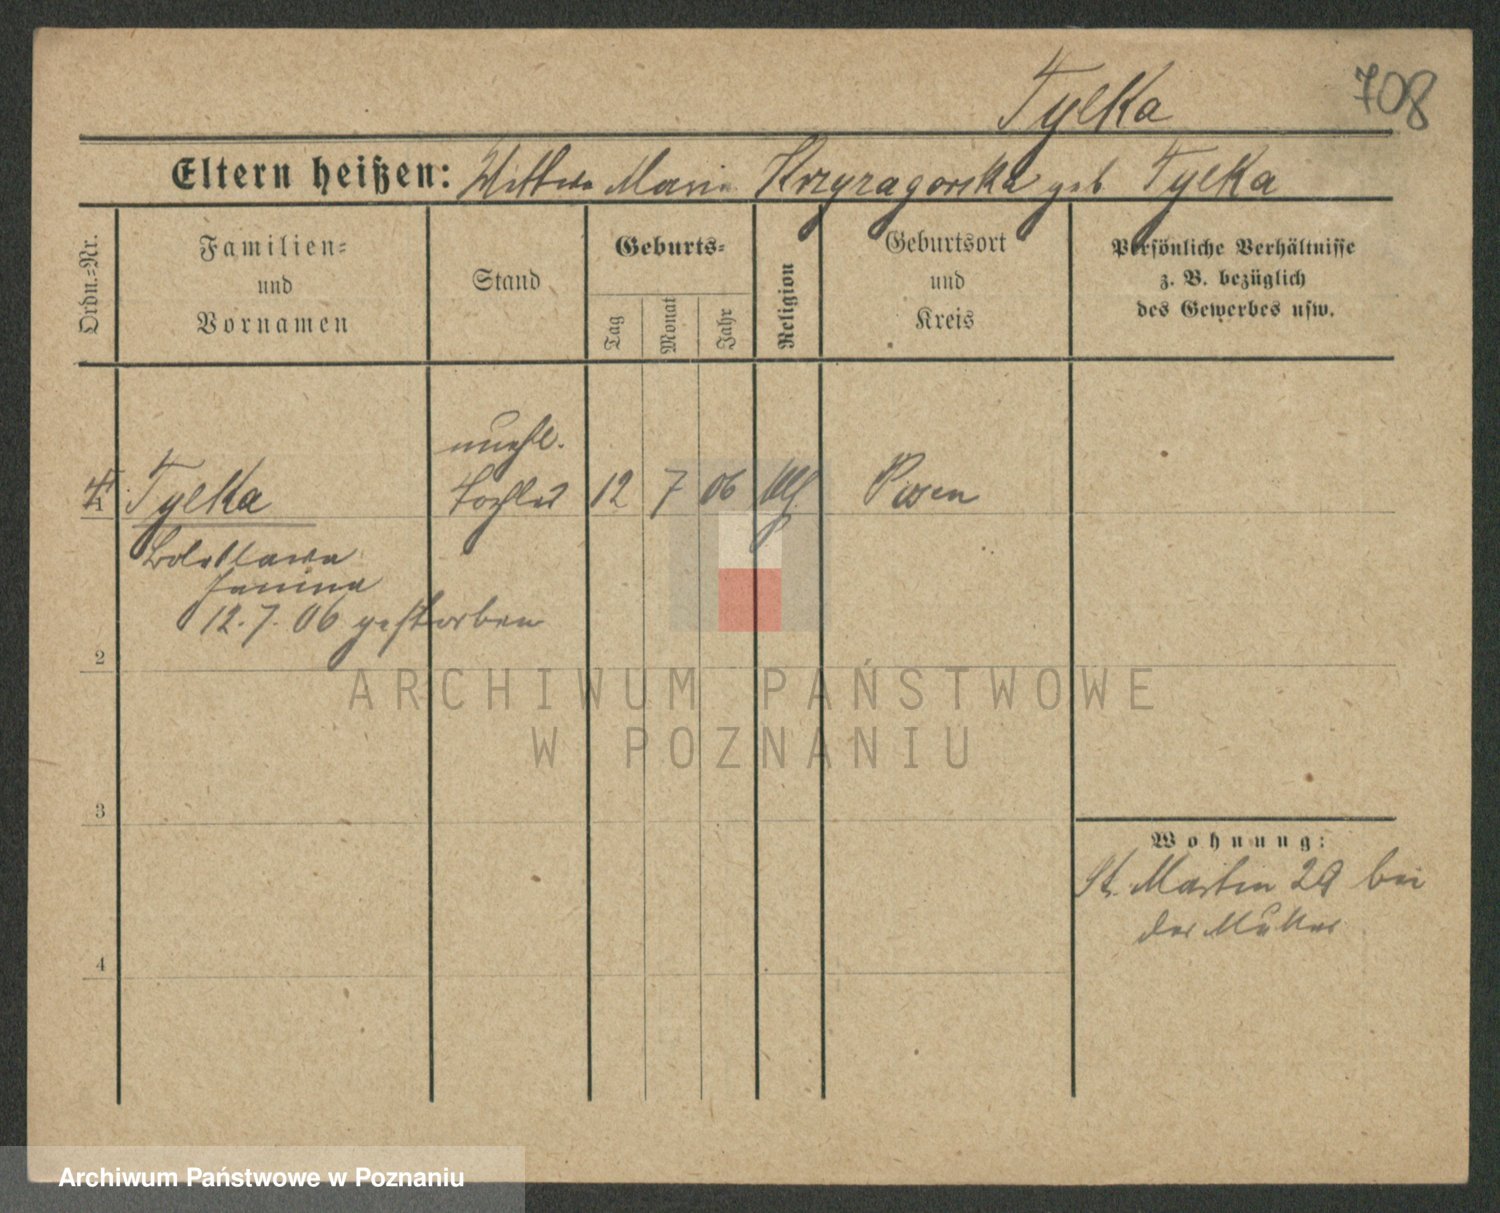 Tylka
708
Eltern heißen: Wittwe Marie Krzyzagorska geb Tylka
Ordn.=Nr.
Familien=
und
Vornamen
Stand
Geburts=
Tag
Monat
Jahr
Religion
Geburtsort
und
Kreis
Persönliche Verhältnisse
z. B. bezüglich
des Gewerbes usw.
unehl.
1 Tylka Tochter 12 7 06 Posen
Boleslawa
Janina
12.7.06 gestorben
2
3
4
Wohnung:
St. Martin 29 bei
der Mutter
ARCHIWUM PAŃSTWOWE
W POZNANIU
Archiwum Państwowe w Poznaniu